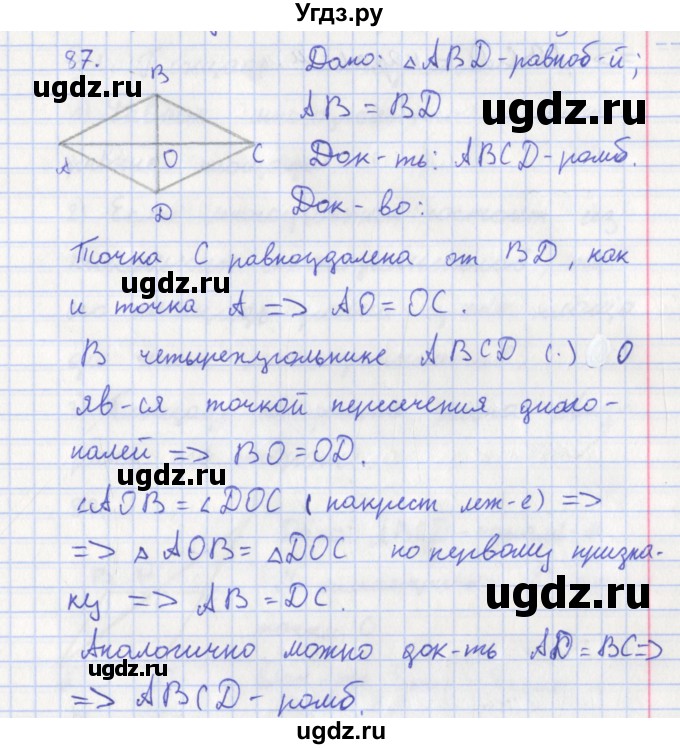 Угдз.ру
87.
Дано: △ABD-равноб-й;
B
AB = BD
A O C
Док-ть: ABCD-ромб.
D
Док-во:
ugdz.ru
ugdz.ru
Точка C равноудалена от BD, как
и точка A => AO = OC.
ugdz.ru
В четырехугольнике ABCD (·) O
яв-ся точкой пересечения диаго-
налей => BO = OD.
ugdz.ru
∠AOB = ∠DOC (накрест леж-е) =>
=> △AOB = △DOC по первому призна-
ку => AB = DC.
ugdz.ru
Аналогично можно док-ть AD = BC =>
=> ABCD-ромб.
ugdz.ru
ugdz.ru
ugdz.ru